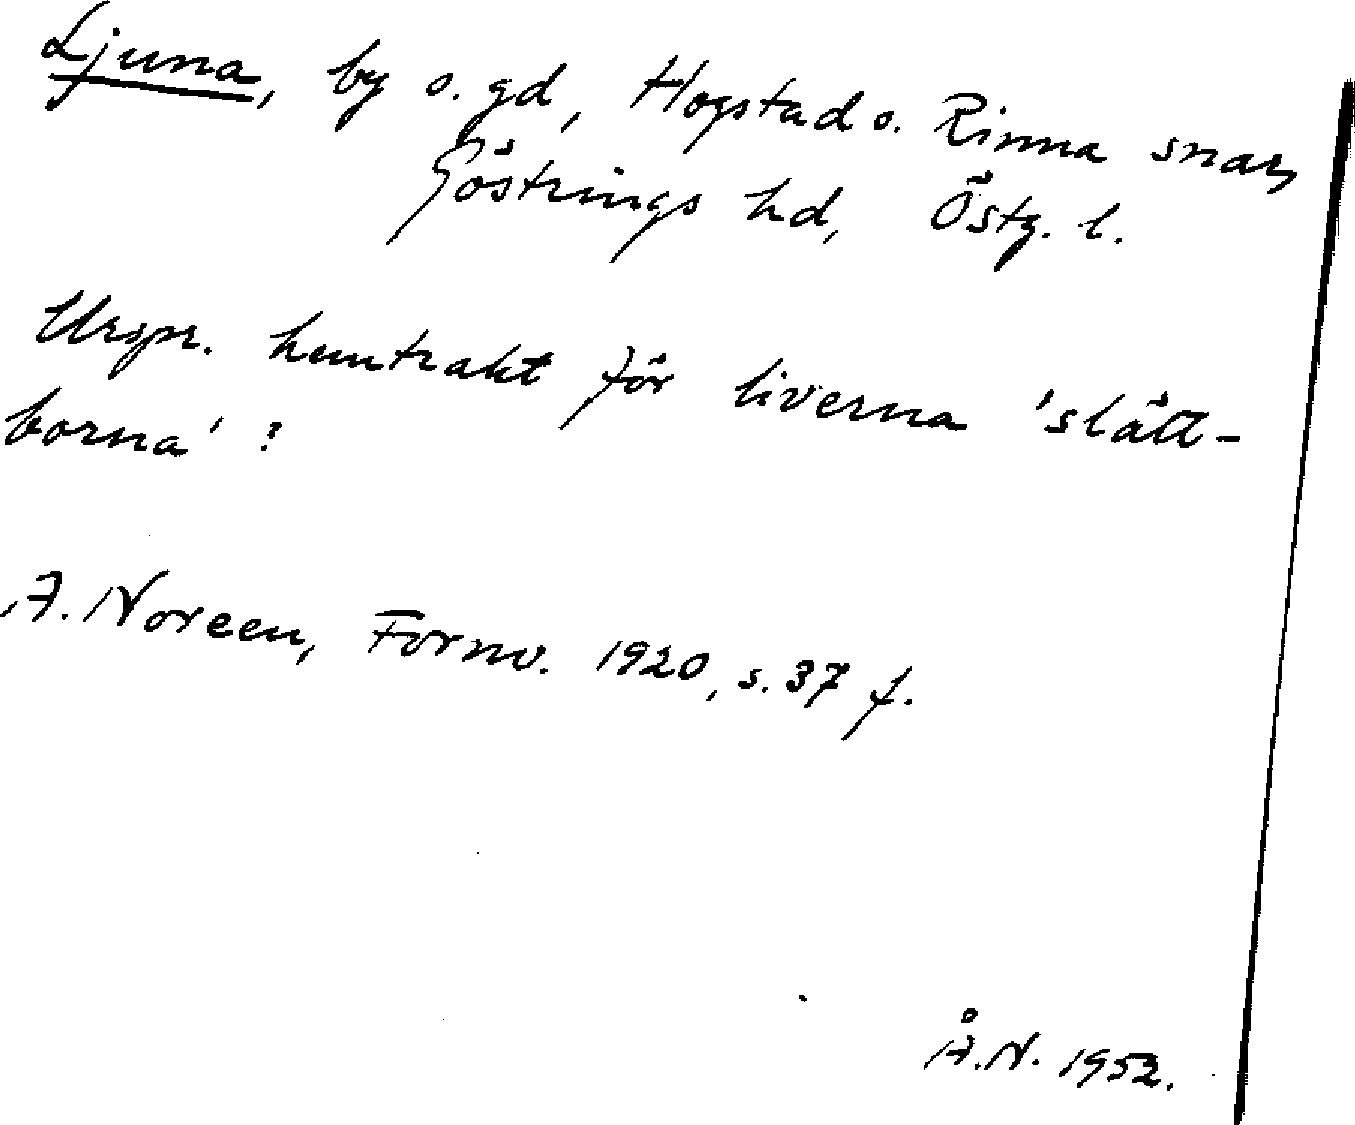 Ljuna, by o. gd, Hogstad o. Rinna snar,
Göstrings hd, Östg. l.
Urspr. hemtrakt för liverna 'slätt-
borna'?
A. Noreen, Fornv. 1920, s. 37 f.
Å.N. 1952.